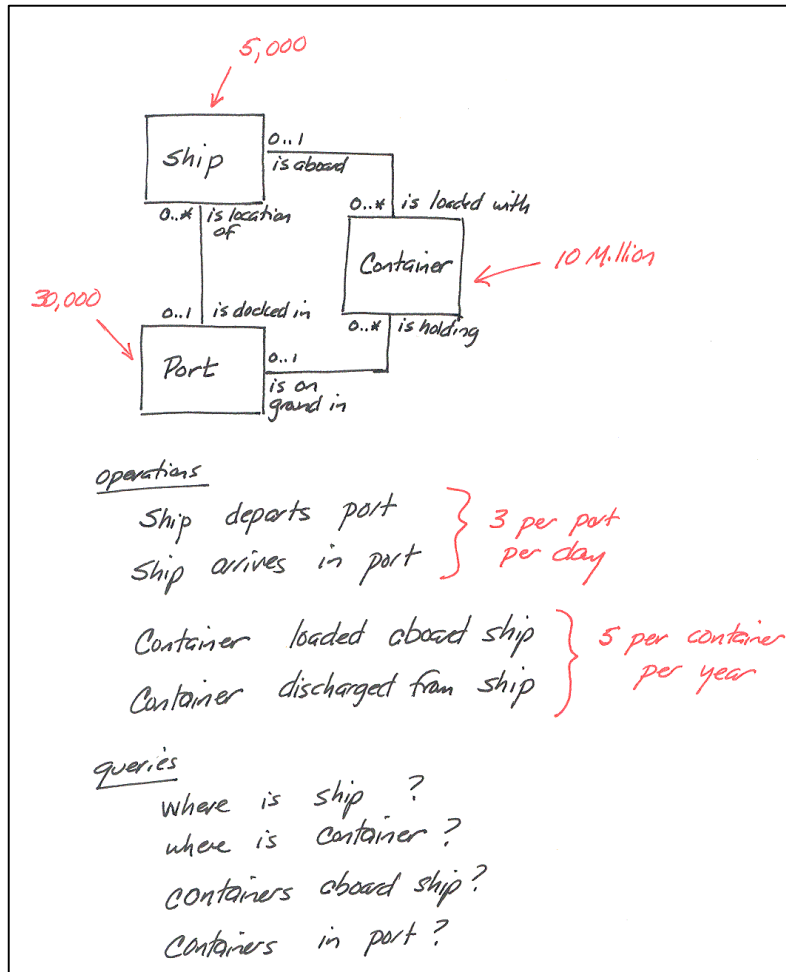 5,000
Ship
0..1
is aboard
0..* is location
of
0..* is loaded with
Container
10 Million
30,000
0..1 is docked in
0..* is holding
Port
0..1
is on
ground in
operations
Ship departs port
Ship arrives in port
3 per port
per day
Container loaded aboard ship
Container discharged from ship
5 per container
per year
queries
where is ship ?
where is container ?
containers aboard ship ?
containers in port ?